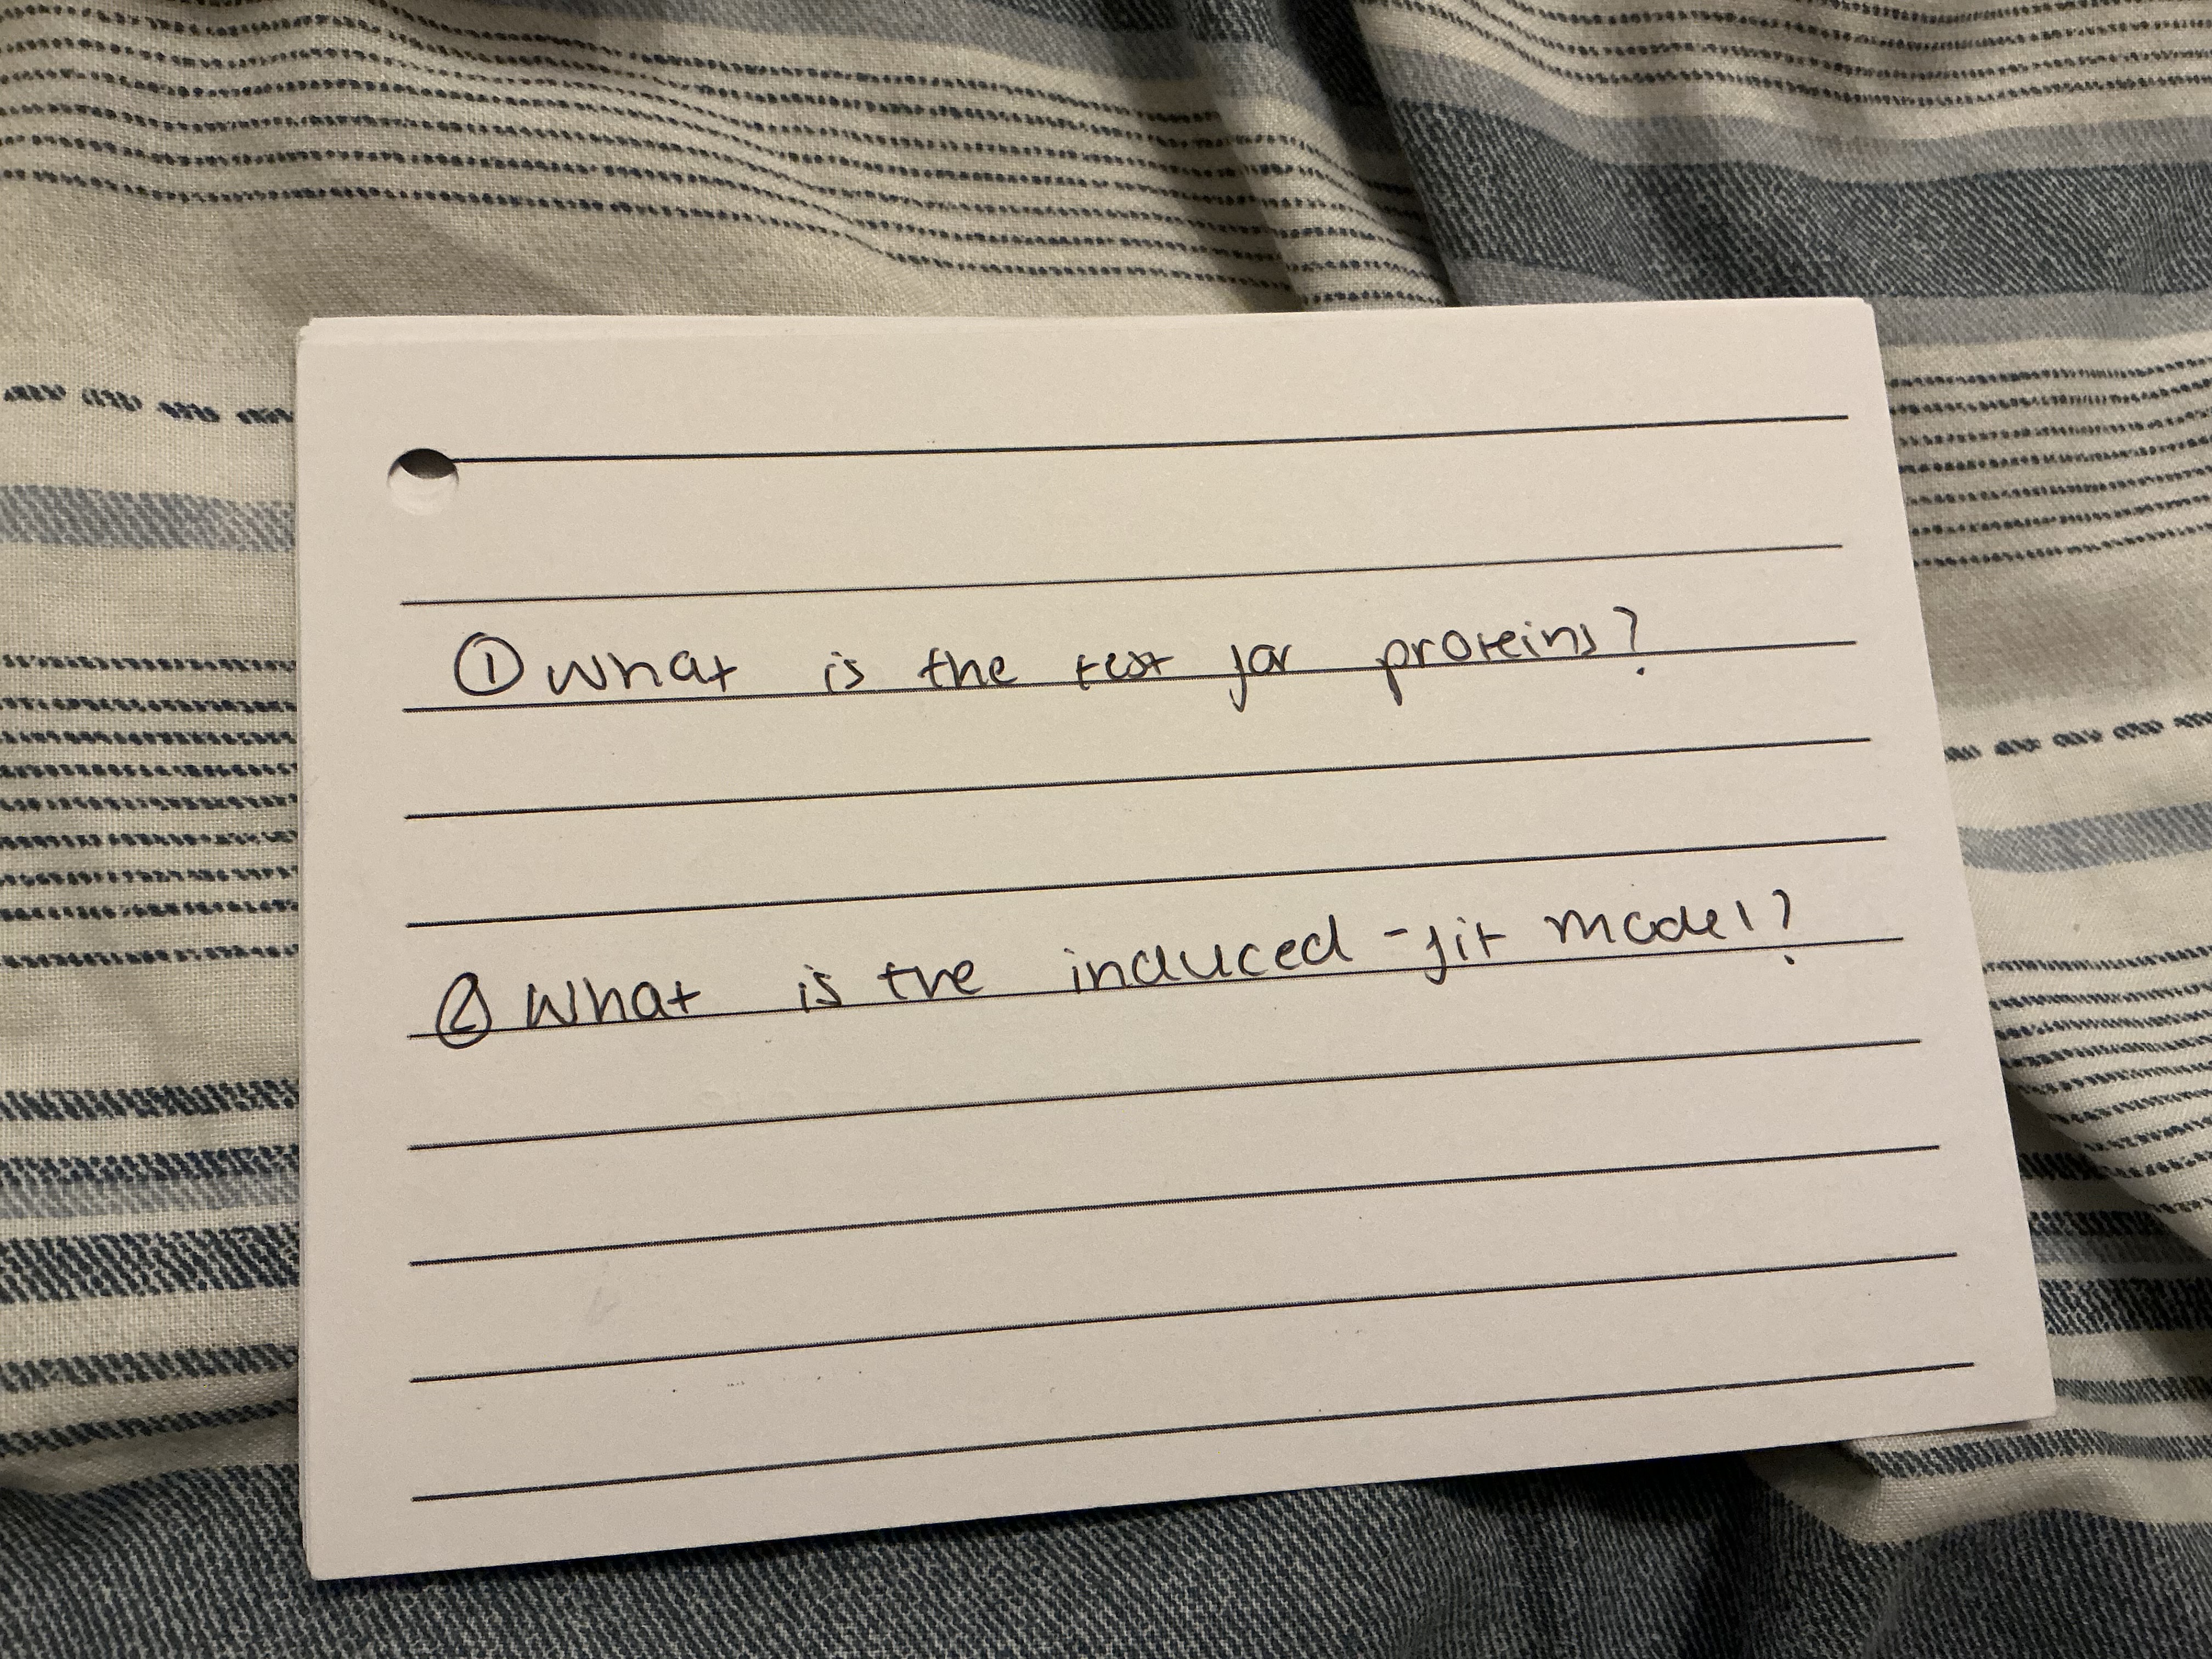 ① What is the test for proteins?
② What is the induced-fit model?